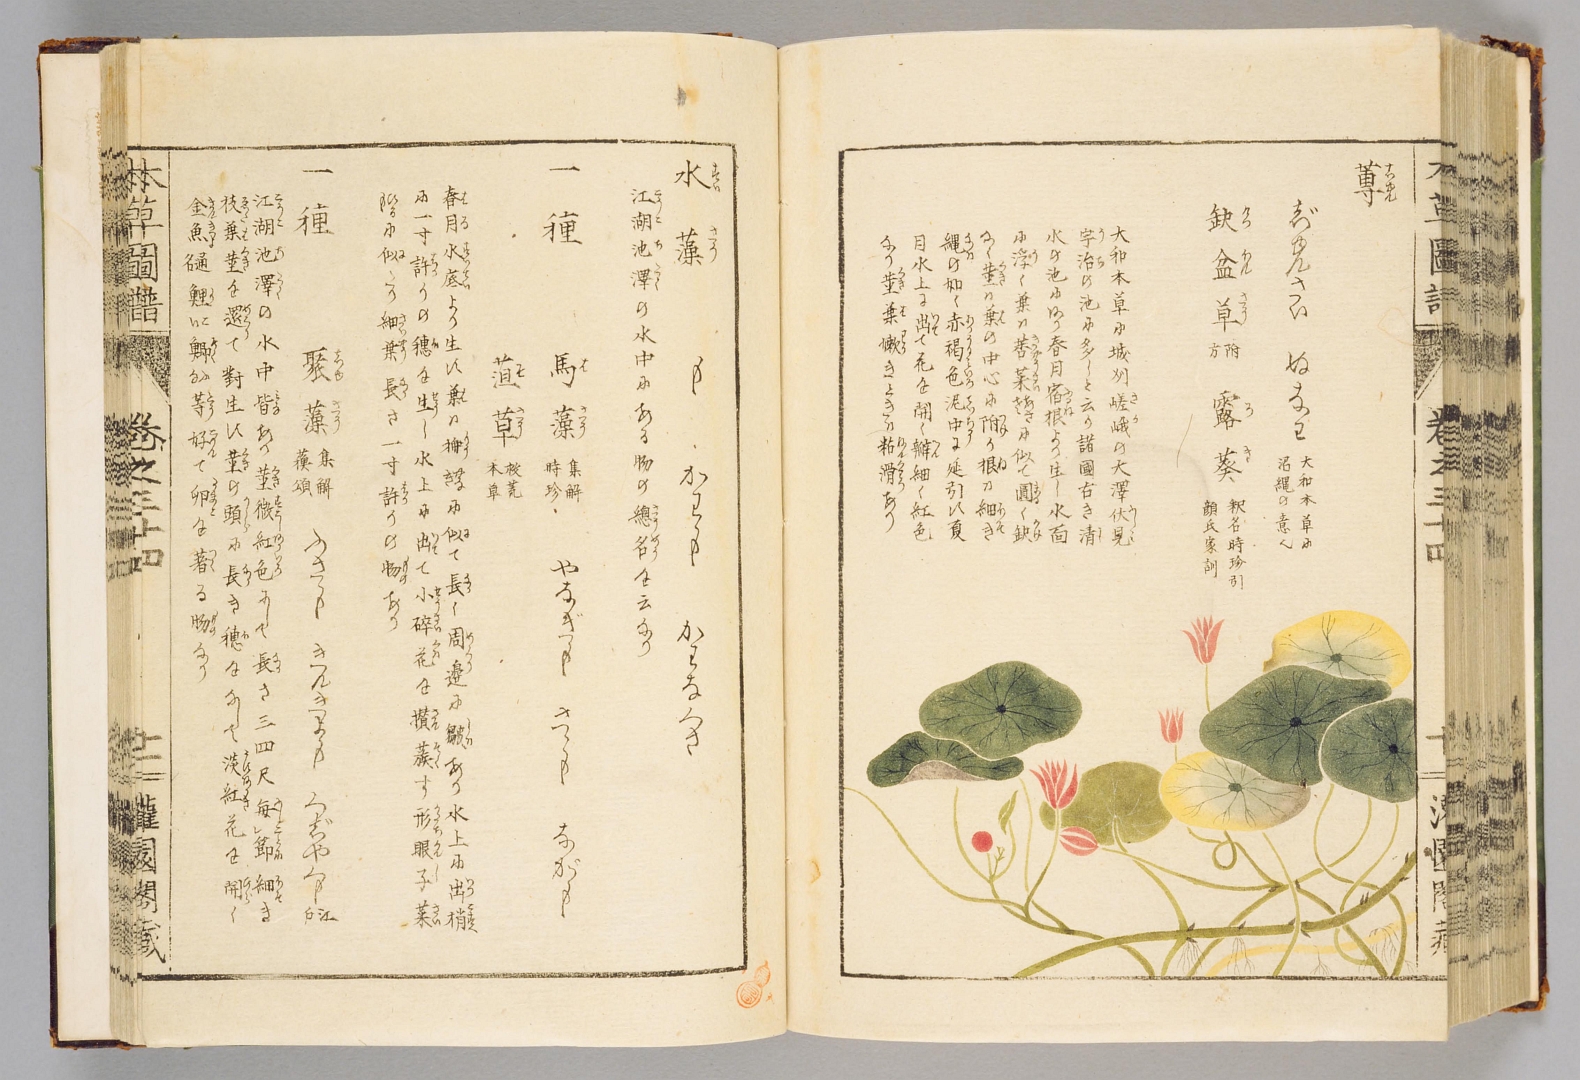 蓴
じゅんさい ぬなは 大和本草ニ
沼縄の意
缺盆草 附方 露葵 釈名時珍引
顔氏家訓
大和本草に城刕嵯峨の大澤伏見
宇治の池に多しと云り諸國古き清
水の池にあり春月宿根より生し水面
に浮く葉は莕菜に似て圓く缺
なく莖は葉の中心に附り根は細き
縄の如く赤褐色泥中に延引は夏
月水上に出て花を開く瓣細く紅色
なり莖葉嫩きときは粘滑あり
本草圖譜
卷之三十四
水藻 も かはも かはなぐさ
江湖池澤の水中にある物の總名を云なり
一種 馬藻 集解時珍 やなぎも さゝも ながも
菹草 救荒本草
春月水底より生は葉は柳葉に似て長く周邉に皺あり水上に出梢
に一寸許りの穗を生し水上に出て小碎花を攢蔟す形眼子菜
に似て細葉長さ一寸許りの物あり
一種 聚藻 集解蘓頌 ふさも きんぎょも くじゃくも 江戸
江湖池澤の水中皆あり莖微紅色にして長さ三四尺毎節細き
枝葉莖を遶て對生は莖の頭に長き穗をなして淡紅花を開く
金魚鯉鯽等好て卵を著る物なり
本草圖譜
卷之三十四
十二
灌園閣藏